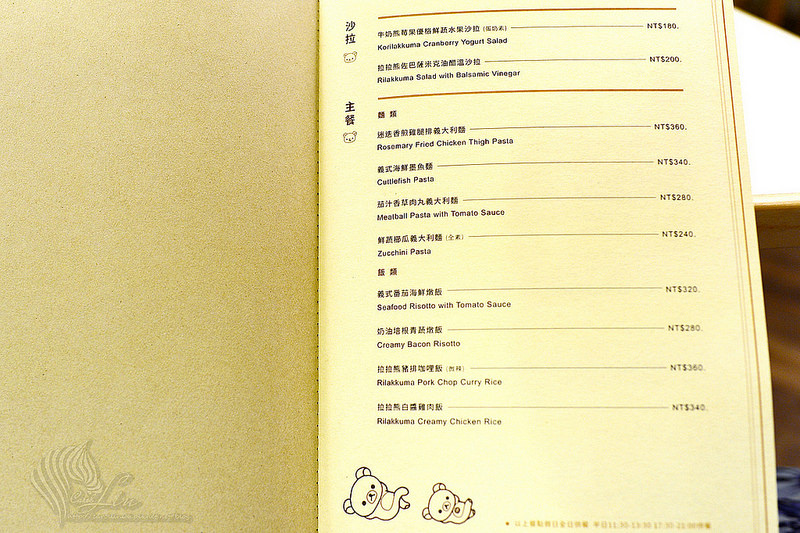 沙拉
牛奶熊莓果優格鮮蔬水果沙拉 (蛋奶素) NT$180.
Korilakkuma Cranberry Yogurt Salad
拉拉熊佐巴薩米克油醋溫沙拉 NT$200.
Rilakkuma Salad with Balsamic Vinegar
主餐
麵 類
迷迭香煎雞腿排義大利麵 NT$360.
Rosemary Fried Chicken Thigh Pasta
義式海鮮墨魚麵 NT$340.
Cuttlefish Pasta
茄汁香草肉丸義大利麵 NT$280.
Meatball Pasta with Tomato Sauce
鮮蔬櫛瓜義大利麵 (全素) NT$240.
Zucchini Pasta
飯 類
義式番茄海鮮燉飯 NT$320.
Seafood Risotto with Tomato Sauce
奶油培根青蔬燉飯 NT$280.
Creamy Bacon Risotto
拉拉熊豬排咖哩飯 NT$360.
Rilakkuma Pork Chop Curry Rice
拉拉熊白醬雞肉飯 NT$340.
Rilakkuma Creamy Chicken Rice
以上餐點假日全日供餐 平日11:30-13:30 17:30-21:00供餐